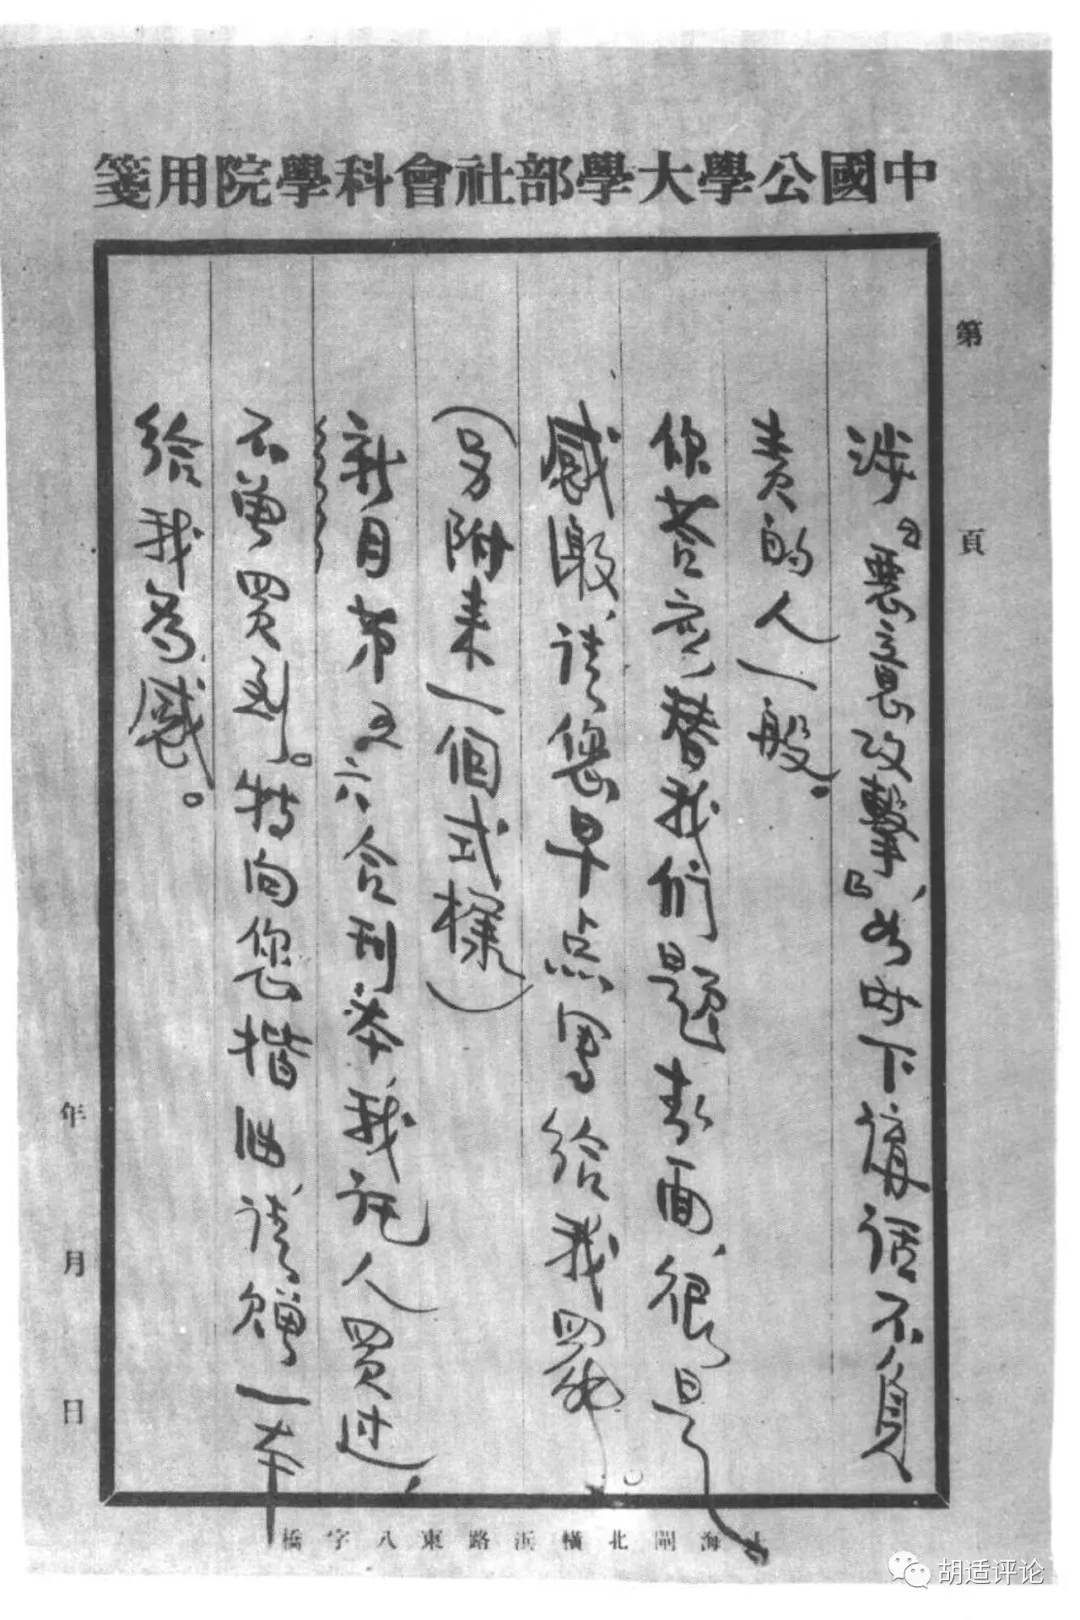 中國公學大學部社會科學院用箋
第 頁
涉『惡意攻擊』,如時下講话不負
責的人一般。
你荅应替我們題封面,很是
感激,请您早点寫給我罷。
(另附来一個式樣)
新月第五六合刊本,我託人買过,
不曾買到。特向您揩油,请贈一本
給我為感。
年 月 日
上海閘北橫浜路東八字橋
胡适评论